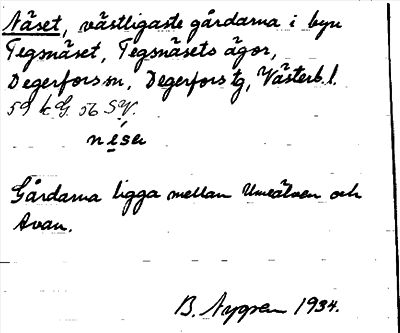 Näset, västligaste gårdarna i byn
Tegsnäset, Tegsnäsets ägor,
Degerfors sn, Degerfors tg, Västerb. l.
59 k G. 56 SV.
Gårdarna ligga mellan Umeälven och
Avan.
B. Nygren 1934.